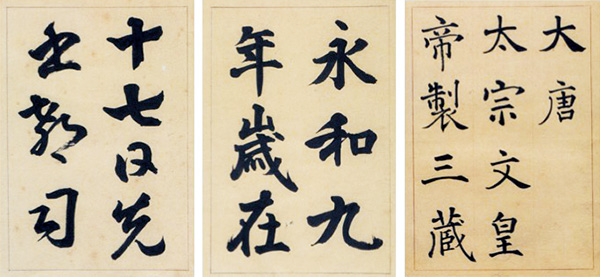 十七日先
書郗司
永和九
年歲在
大唐
太宗文皇
帝製三藏